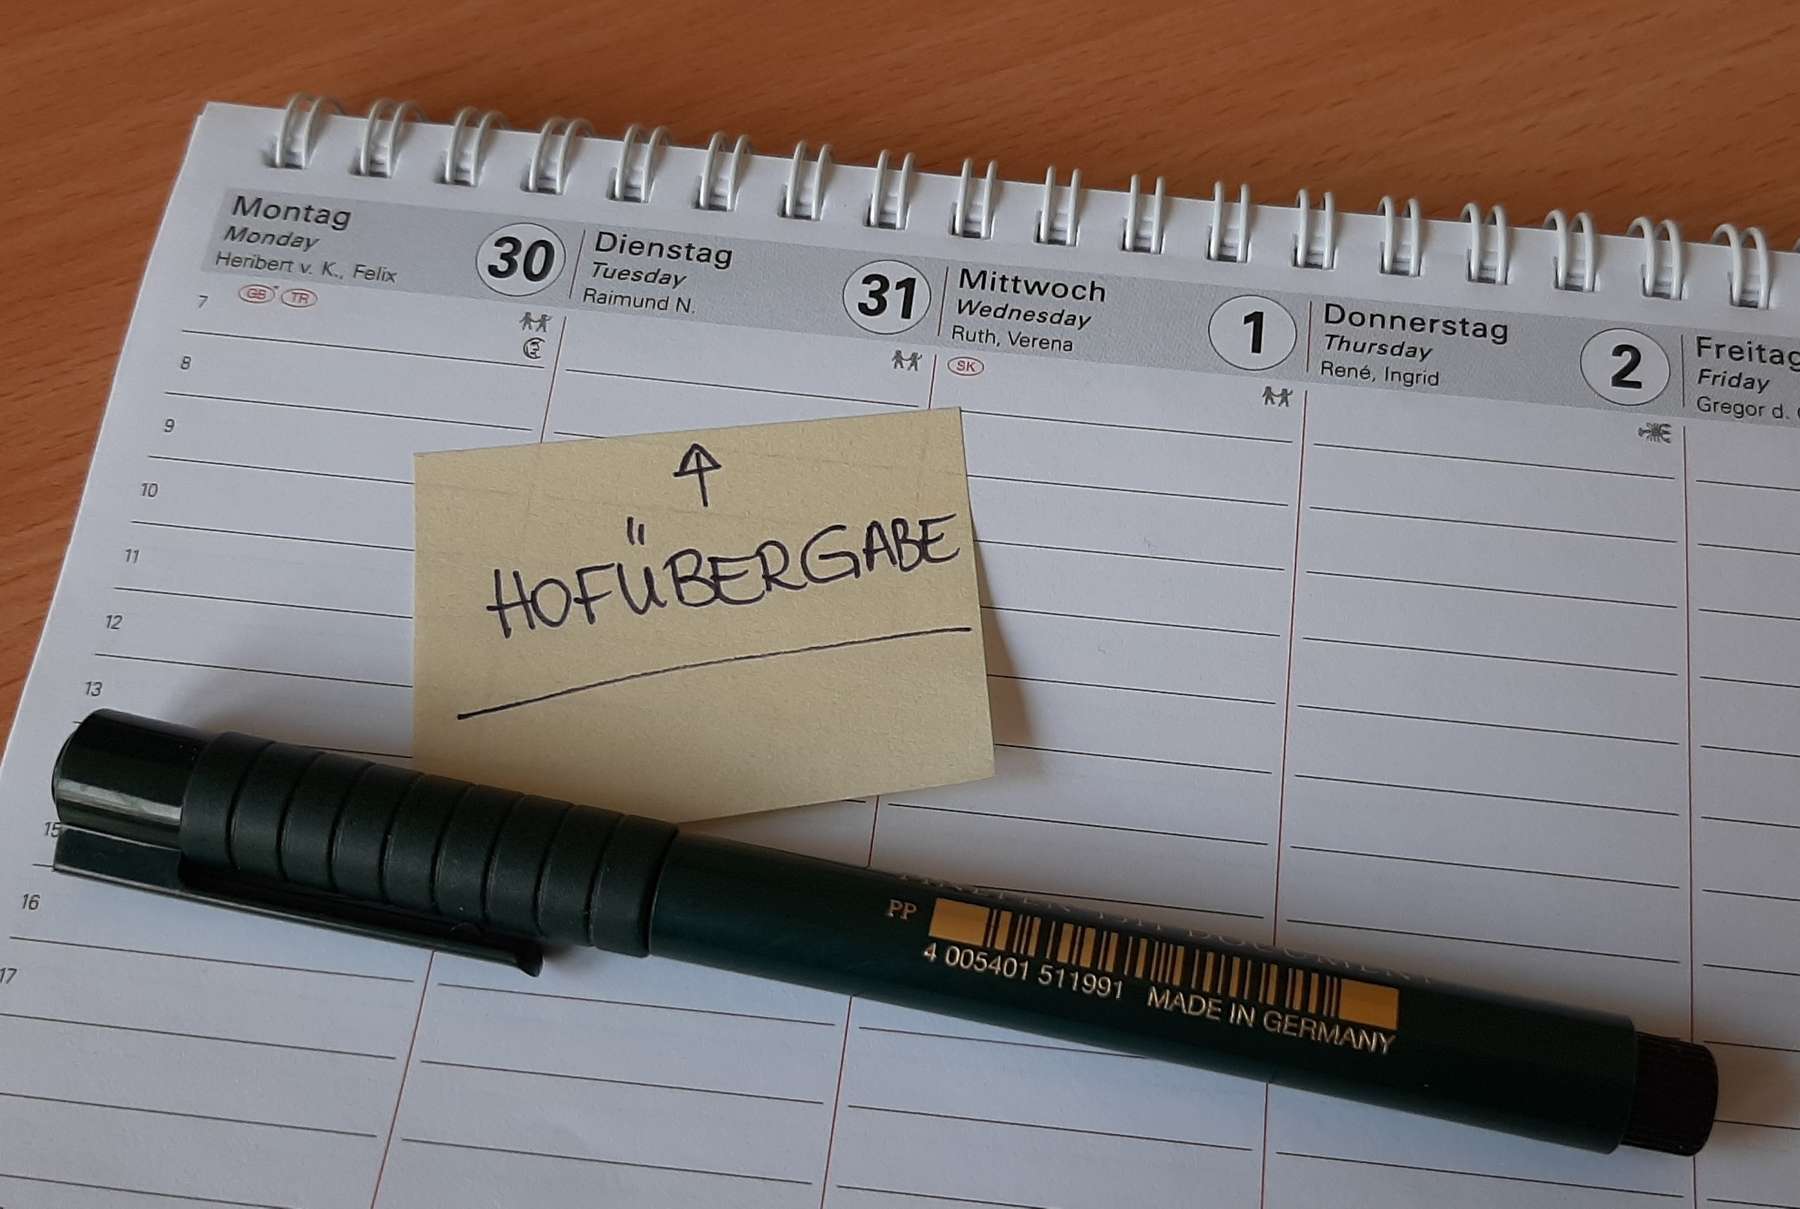 Montag
Monday
Heribert v. K., Felix
30
Dienstag
Tuesday
Raimund N.
31
Mittwoch
Wednesday
Ruth, Verena
1
Donnerstag
Thursday
René, Ingrid
2
Freitag
Friday
Gregor d.
GB TR
SK
7
8
9
10
11
12
13
15
16
17
HOFÜBERGABE
PP
4 005401 511991 MADE IN GERMANY